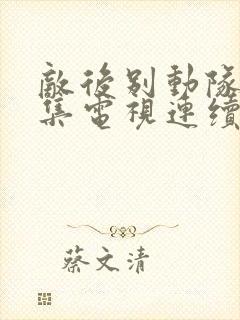 敵後别動隊
集電視連續
蔡文清